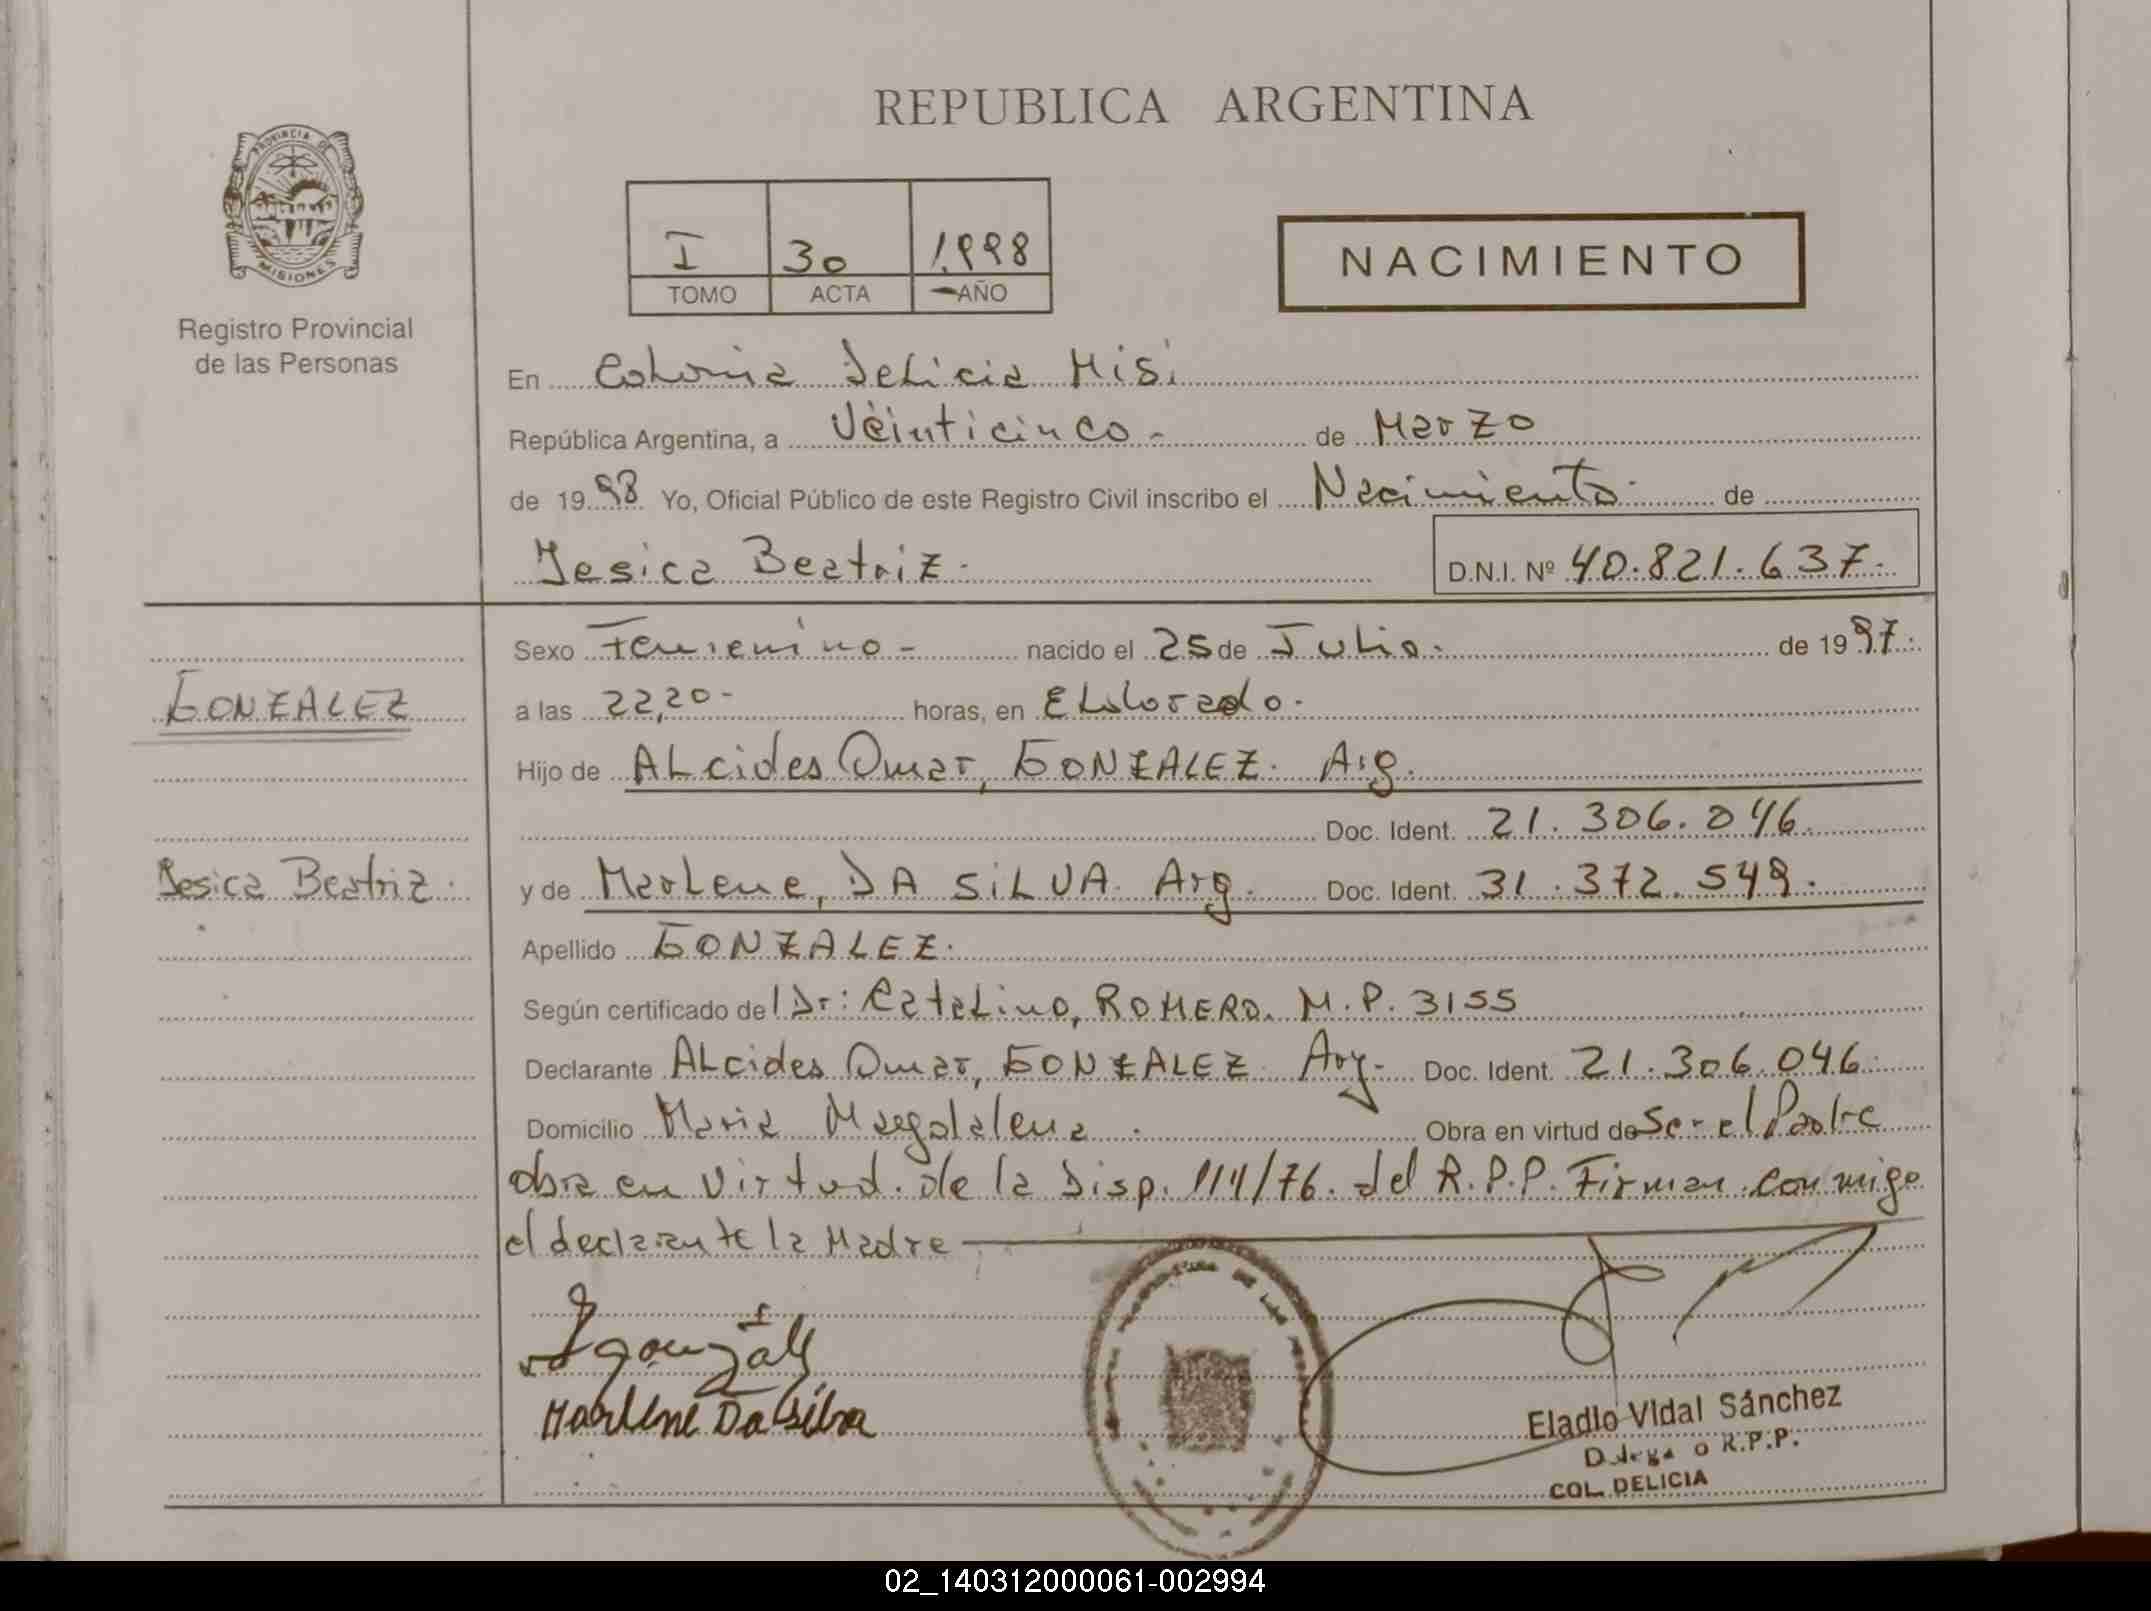 REPUBLICA ARGENTINA
PROVINCIA DE MISIONES
Registro Provincial
de las Personas
I 30 1.998
TOMO ACTA AÑO
NACIMIENTO
En Colonia Delicia Misi
República Argentina, a Veinticinco.- de Marzo
de 19 98 Yo, Oficial Público de este Registro Civil inscribo el Nacimiento. de
Jesica Beatriz. D.N.I. Nº 40.821.637.-
Sexo Femenino - nacido el 25 de Julio. de 19 97.
GONZALEZ
a las 22,20- horas, en ELdorado.
Hijo de ALcides Omar, GONZALEZ. Arg.
Doc. Ident. 21.306.046.
Jesica Beatriz.
y de MarLene, DA SiLVA. Arg. Doc. Ident. 31.372.549.
Apellido GONZALEZ.
Según certificado del Dr: CataLino, ROMERO. M.P. 3155
Declarante ALcides Omar, GONZALEZ Arg- Doc. Ident. 21.306.046
Domicilio Maria Magdalena. Obra en virtud de Ser el Padre
obra en virtud de la Disp. 114/76. del R.P.P. Firman conmigo
el declarante la Madre
Marlene Da Silva
Eladio Vidal Sánchez
R.P.P.
COL. DELICIA
02_140312000061-002994